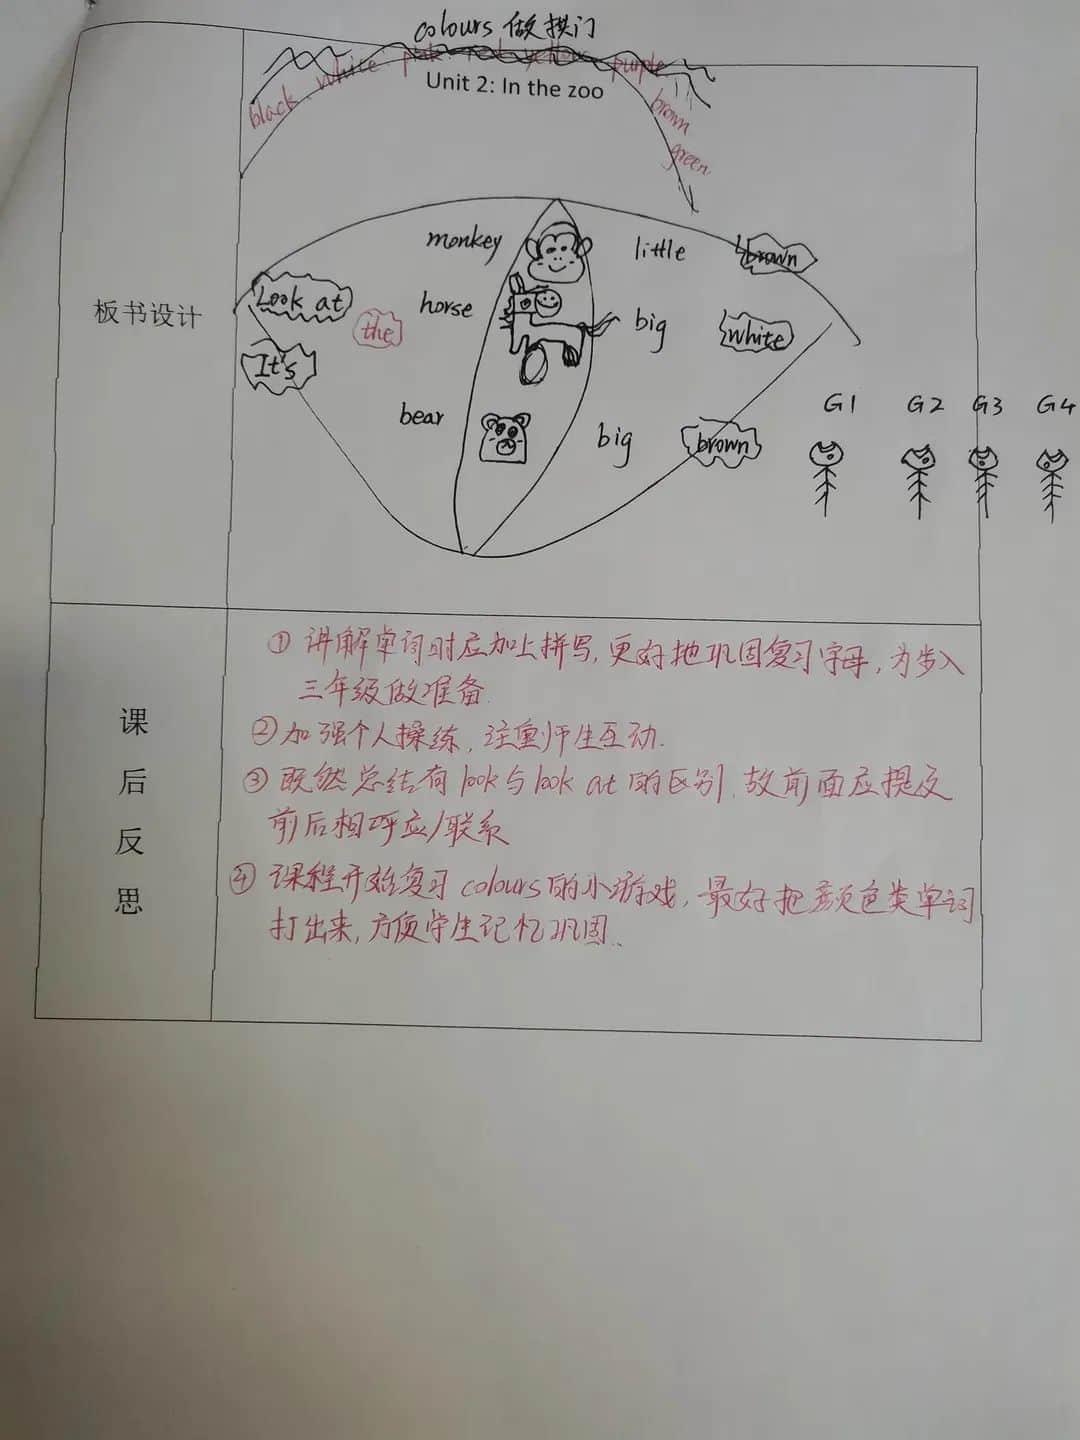 colours 做拱门
black、white pink red yellow purple
brown
green
Unit 2: In the zoo
板书设计
monkey little brown
Look at the horse big white
It's
bear big brown
G1 G2 G3 G4
课后反思
① 讲解单词时应加上拼写，更好地巩固复习字母，为步入
三年级做准备.
② 加强个人操练，注重师生互动.
③ 既然总结有look与look at的区别，故前面应提及
前后相呼应/联系
④ 课程开始复习colours的小游戏，最好把颜色类单词
打出来，方便学生记忆巩固..